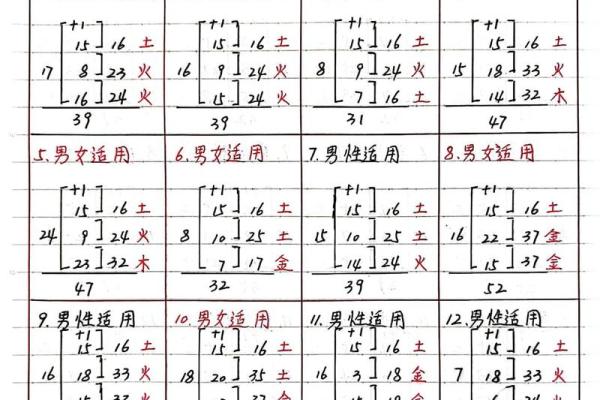 +1
15 16 土
17 8 23 火
16 24 火
39
+1
15 16 土
16 9 24 火
15 24 火
39
+1
15 16 土
8 9 24 火
7 16 土
31
+1
15 16 土
15 18 33 火
14 32 木
47
5.男女适用
+1
15 16 土
24 9 24 火
23 32 木
47
6.男女适用
+1
15 16 土
8 10 25 土
7 17 金
32
7.男性适用
+1
15 16 土
15 10 25 土
14 24 火
39
8.男女适用
+1
15 16 土
16 22 37 金
15 37 金
52
9.男性适用
+1
15 16 土
16 18 33 火
15 33 火
10.男女适用
+1
15 16 土
18 20 35 土
37 金
11.男性适用
+1
15 16 土
16 3 18 金
15 18 金
12.男性适用
+1
15 16 土
7 18 33 火
24 火